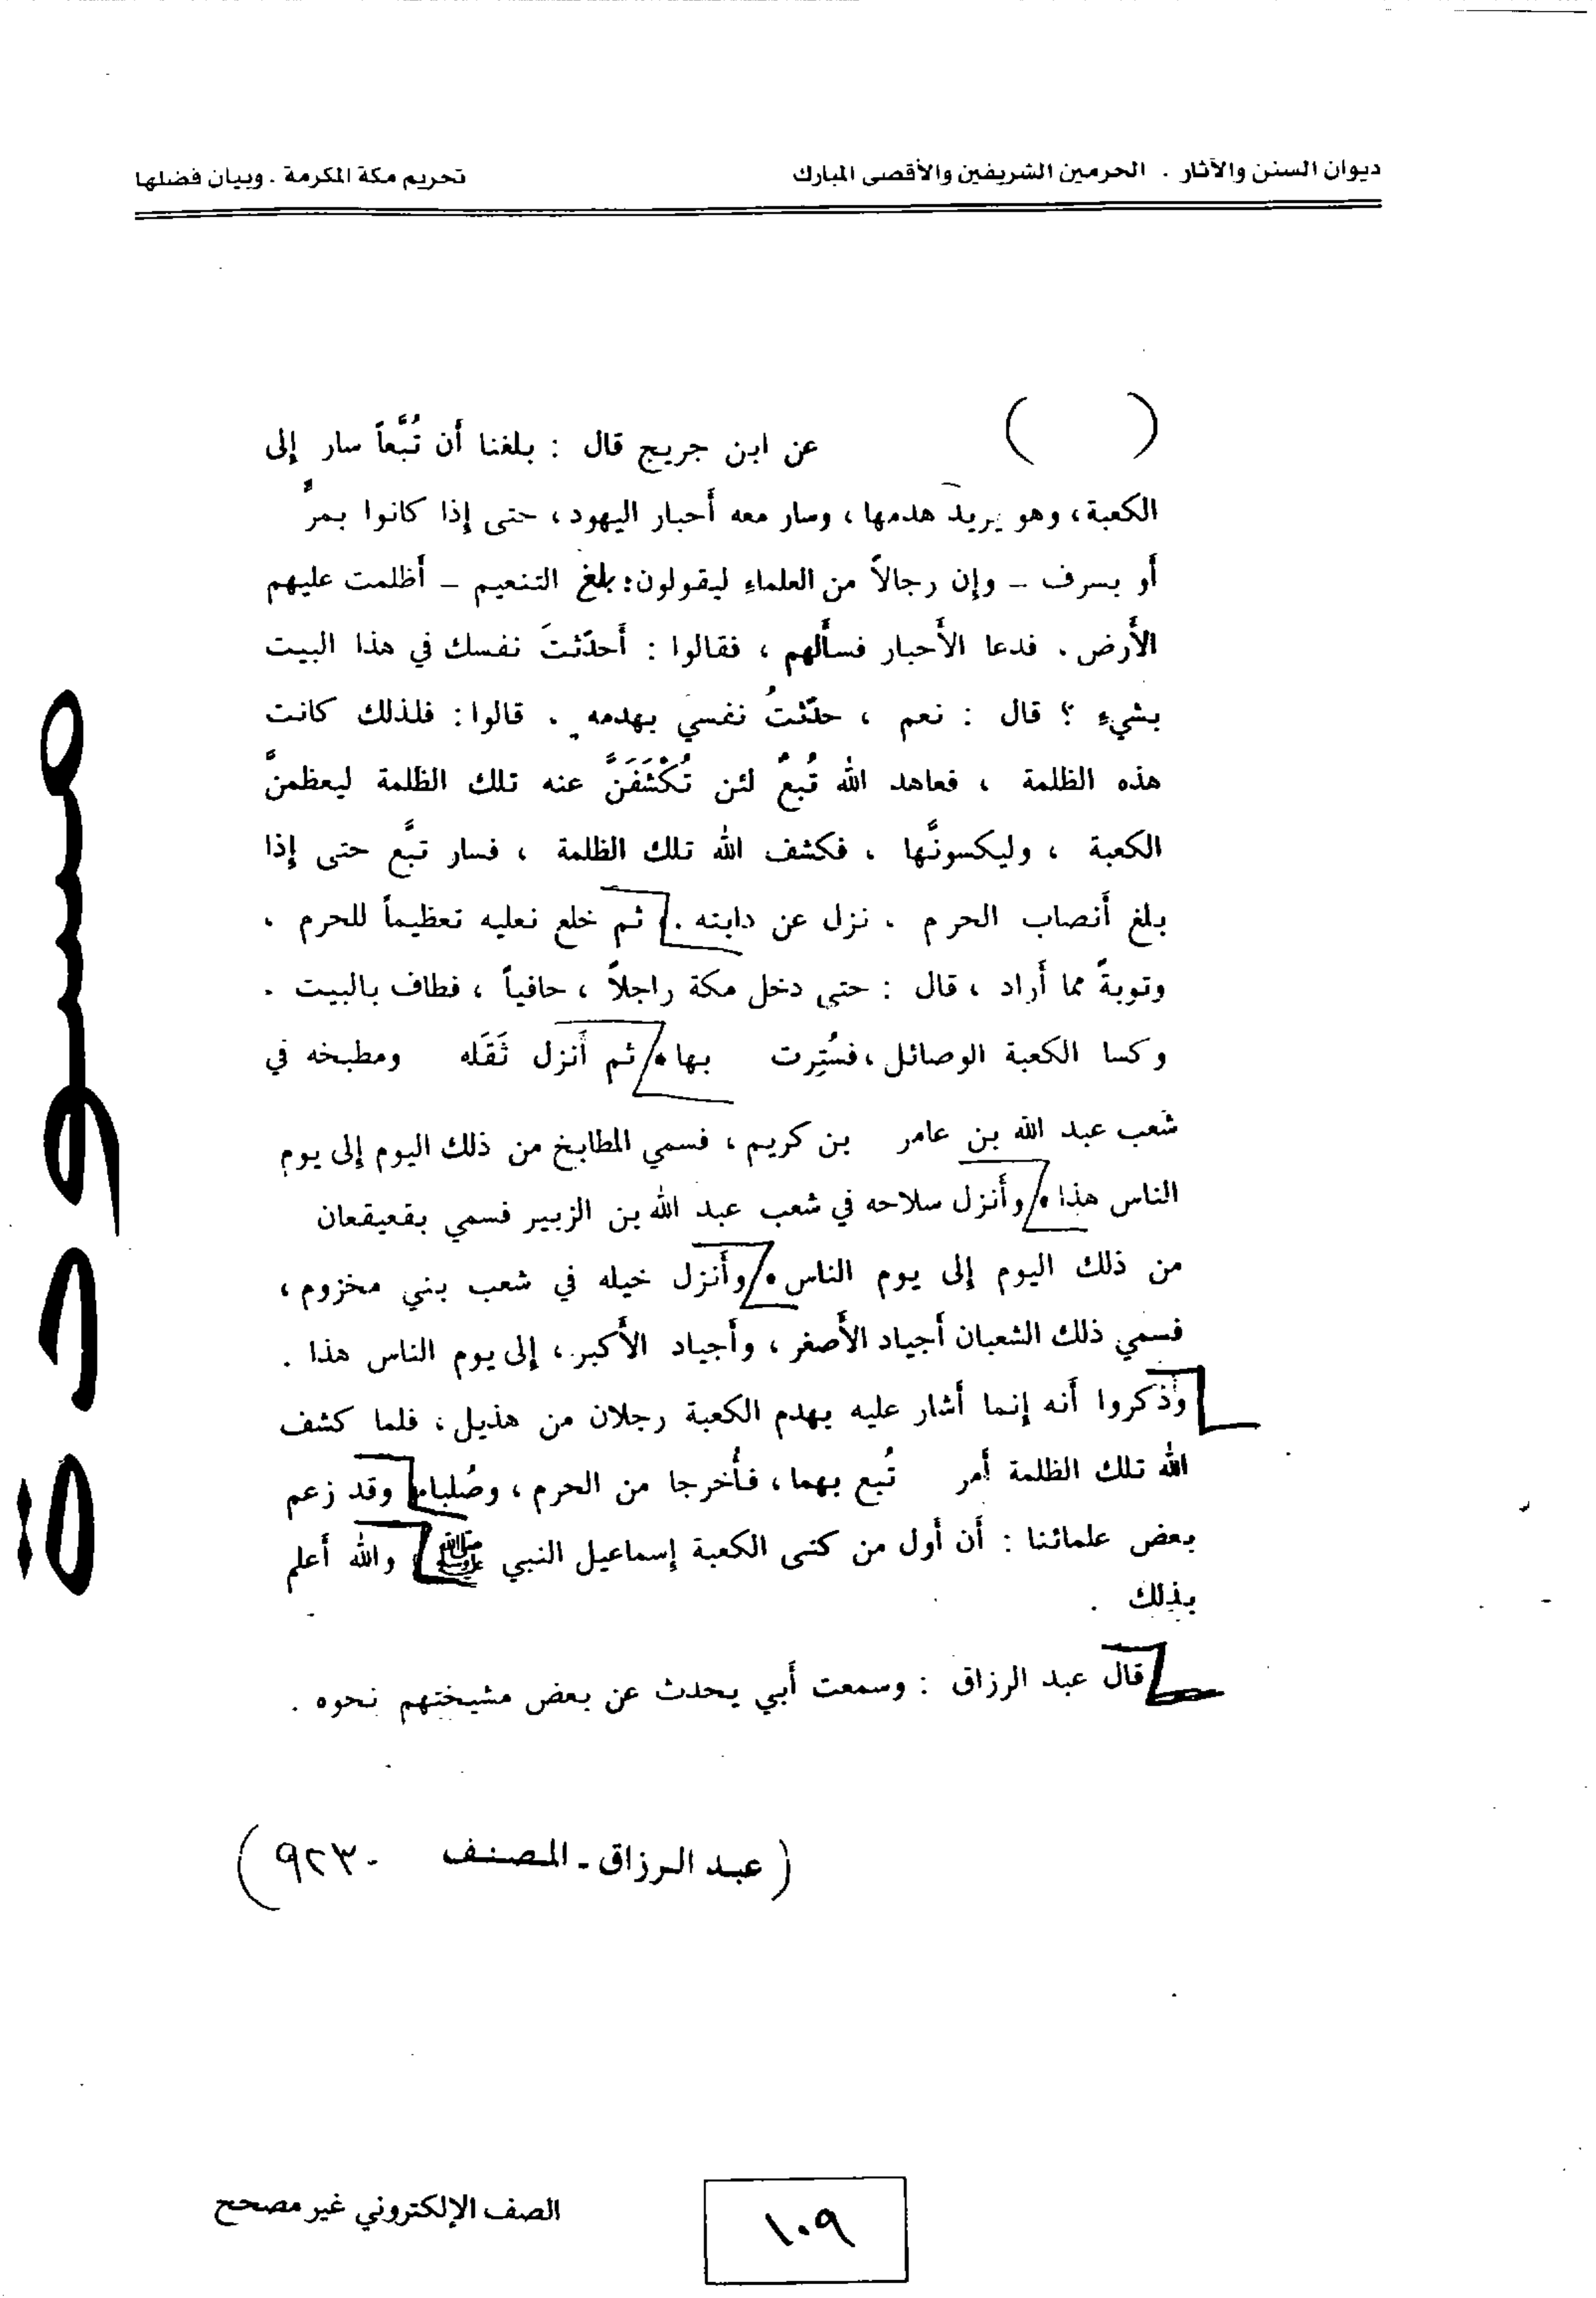 ديوان السنن والآثار . الحرمين الشريفين والأقصى المبارك
تحريم مكة المكرمة . وبيان فضلها
( ) عن ابن جريج قال : بلغنا أن تُبَّعاً سار إلى
الكعبة، وهو يريد هدمها ، وسار معه أحبار اليهود ، حتى إذا كانوا بمرٍّ
أو بسرف – وإن رجالاً من العلماءِ ليقولون: بلغ التنعيم – أظلمت عليهم
الأرض . فدعا الأحبار فسألهم ، فقالوا : أحدّثتَ نفسك في هذا البيت
بشيءٍ ؟ قال : نعم ، حدّثتُ نفسي بهدمه . قالوا : فلذلك كانت
هذه الظلمة ، فعاهد الله تُبعٌ لئن تُكْشَفَنَّ عنه تلك الظلمة ليعظمنَّ
الكعبة ، وليكسونَّها ، فكشف الله تلك الظلمة ، فسار تبَّع حتى إذا
بلغ أنصاب الحرم . نزل عن دابته . ثم خلع نعليه تعظيماً للحرم ،
وتوبةً مما أراد ، قال : حتى دخل مكة راجلاً ، حافياً ، فطاف بالبيت .
وكسا الكعبة الوصائل ، فسُتِرت بها . ثم أنزل ثَقَله ومطبخه في
شعب عبد الله بن عامر بن كريم ، فسمي المطابخ من ذلك اليوم إلى يوم
الناس هذا . وأنزل سلاحه في شعب عبد الله بن الزبير فسمي بقعيقعان
من ذلك اليوم إلى يوم الناس . وأنزل خيله في شعب بني مخزوم ،
فسمي ذلك الشعبان أجياد الأصغر ، وأجياد الأكبر ، إلى يوم الناس هذا .
وذكروا أنه إنما أشار عليه بهدم الكعبة رجلان من هذيل ، فلما كشف
الله تلك الظلمة أمر تُبع بهما ، فأُخرجا من الحرم ، وصُلبا . وقد زعم
بعض علمائنا : أن أول من كسى الكعبة إسماعيل النبي ﷺ ، والله أعلم
بذلك .
قال عبد الرزاق : وسمعت أبي يحدث عن بعض مشيختهم نحوه .
( عبد الرزاق - المصنف ٩٢٣٠ )
مسودة
١٠٩
الصف الإلكتروني غير مصحح